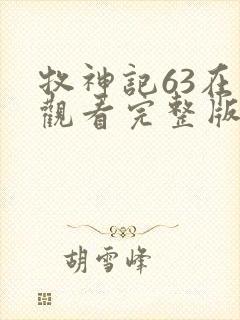 牧神記63在
觀看完整版
胡雪峰